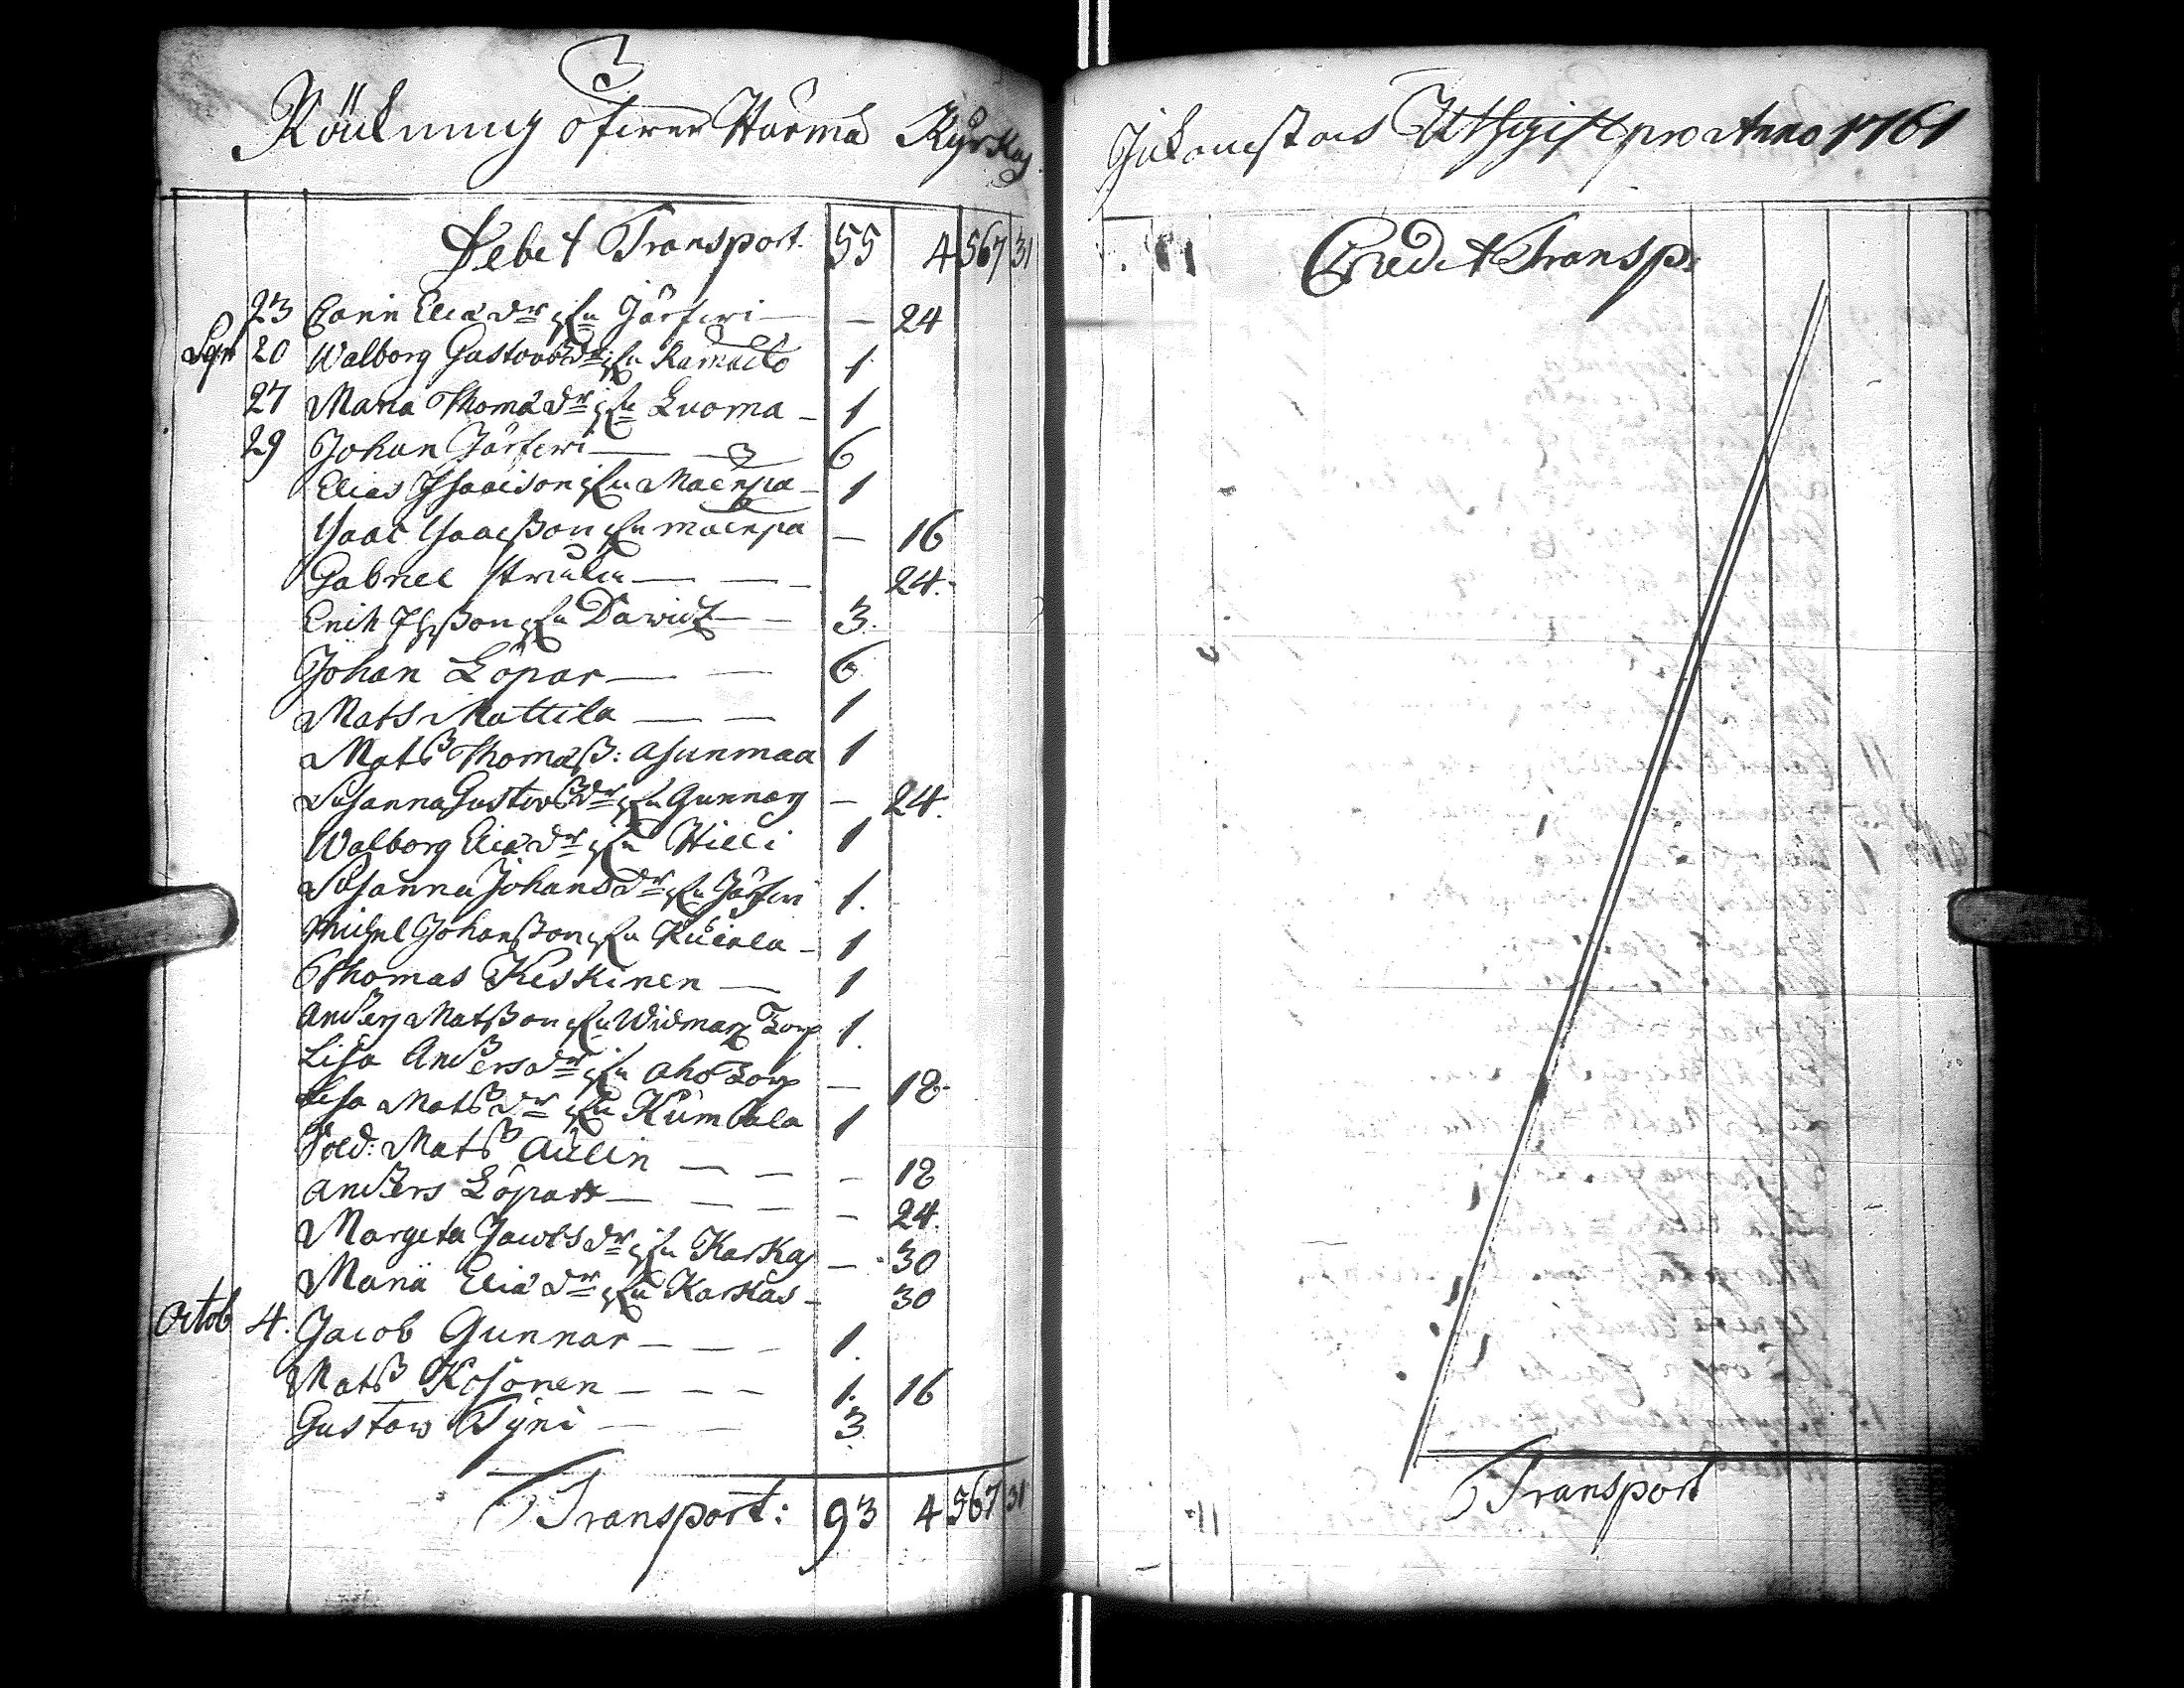 Räkning öfwer Härmä Kyrkas
Debet Transport 55 4 567 31
23 Carin Eliædr ifrn Järfwi — — 24
Sept 20 Walborg Gustavsdr ifrn 1
27 Maria Thomædr ifrn Luoma — 1
29 Johan Järfwi — 6
Elias Isaacson ifrn Mäenpä — 1
Isaac Isaacsson ifrn Mäenpä — 16
Gabriel — — 24.
Erich ifrn Davidz — — 3.
Johan Löpar — — 6
Mats Mattila — — 1
Mats Thomæss: Asunmaa 1
Susanna Gustavsdr ifrn Gunnars — 24.
Walborg Eliædr ifrn Hilli 1
Susanna Johansdr ifrn Järfwi 1.
Michel Johansson ifrn — 1
Thomas Keskinen — 1
Anders Matsson ifrn Widmans Torp 1.
Lisa Andersdr ifrn Aho Torp — 18.
Lisa Matsdr ifrn Kumbala 1
Sold: Mats Aulin — — — 18
Anders Löpar — — — — 24.
Margeta Jacobsdr ifrn Karkas — 30
Maria Eliædr ifrn Karkas — 30
Octob 4. Jacob Gunnar — — — 1.
Mats Kosonen — — — 1. 16
Gustaw Tyni — — 3.
Transport: 93 4 567 31
Inkomst och Utgift pro Anno 1761
Credit Transp:
Transport